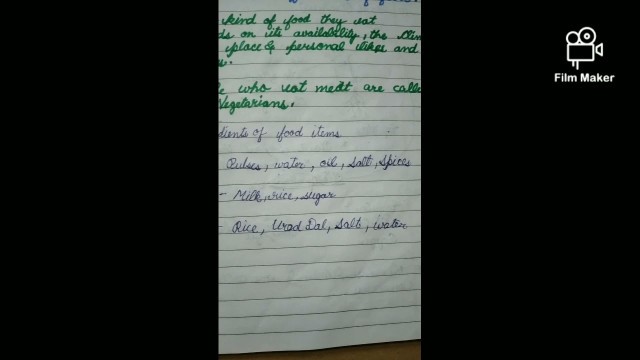 kind of food they eat
ds on its availability, the
place & personal likes and
s.
e who eat meat are calle
Vegetarians.
dients of food items
Pulses, water, oil, salt, spices
- Milk, rice, sugar
- Rice, Urad Dal, Salt, water
Film Maker